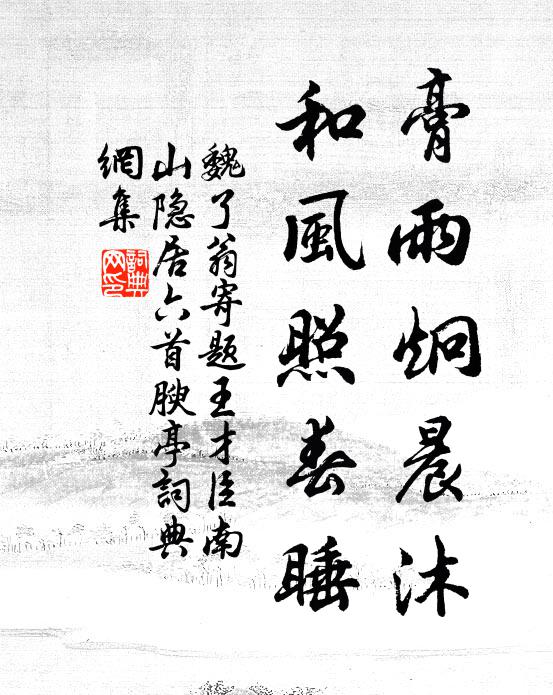 膏雨炯晨沐
和風照春睡
魏了翁寄題王才臣南
山隐居六首腴亭詞典
網集
詞典网印